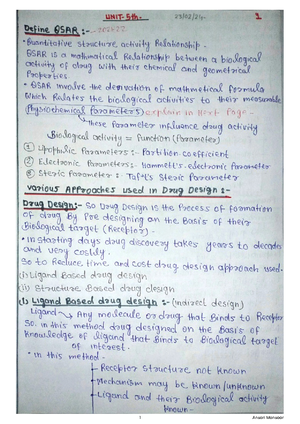 UNIT-5th. 1
Define QSAR :-
• Quantitative structure activity Relationship.
QSAR is a mathmatical Relationship between a biological
activity of drug with their chemical and geometrical
Properties
• QSAR involve the derivation of mathmetical formula
Which Relates the biological activities to their measurable
(Physiochemical parameters) explain in Next Page -
these Parameter influence drug activity
Biological activity = function (Parameter)
① Lipophilic Parameters :- Partition coefficient
② Electronic Parameters: Hammett's electronic Parameter
③ Steric Parameter :- Taft's Steric Parameter
various Approaches used in Drug Design :-
Drug Design:- So Drug Design is the Process of formation
of drug By Pre designing on the Basis of their
Biological target (Receptor).
• In starting days drug discovery takes years to decade
and very costly.
So to Reduce time and cost drug design approach used.
(i) Ligand Based drug design
(ii) Structure Based drug design
(i) Ligand Based drug design :- (Indirect design)
Ligand → Any molecule or drug that Binds to Receptor
So. in this method drug designed on the Basis of
Knowledge of ligand that Binds to Biological target
of interest.
• in this method -
Receptor Structure not known
Mechanism may be known/unknown
Ligand and their Biological activity
Known -
1
Ansari Monaeer